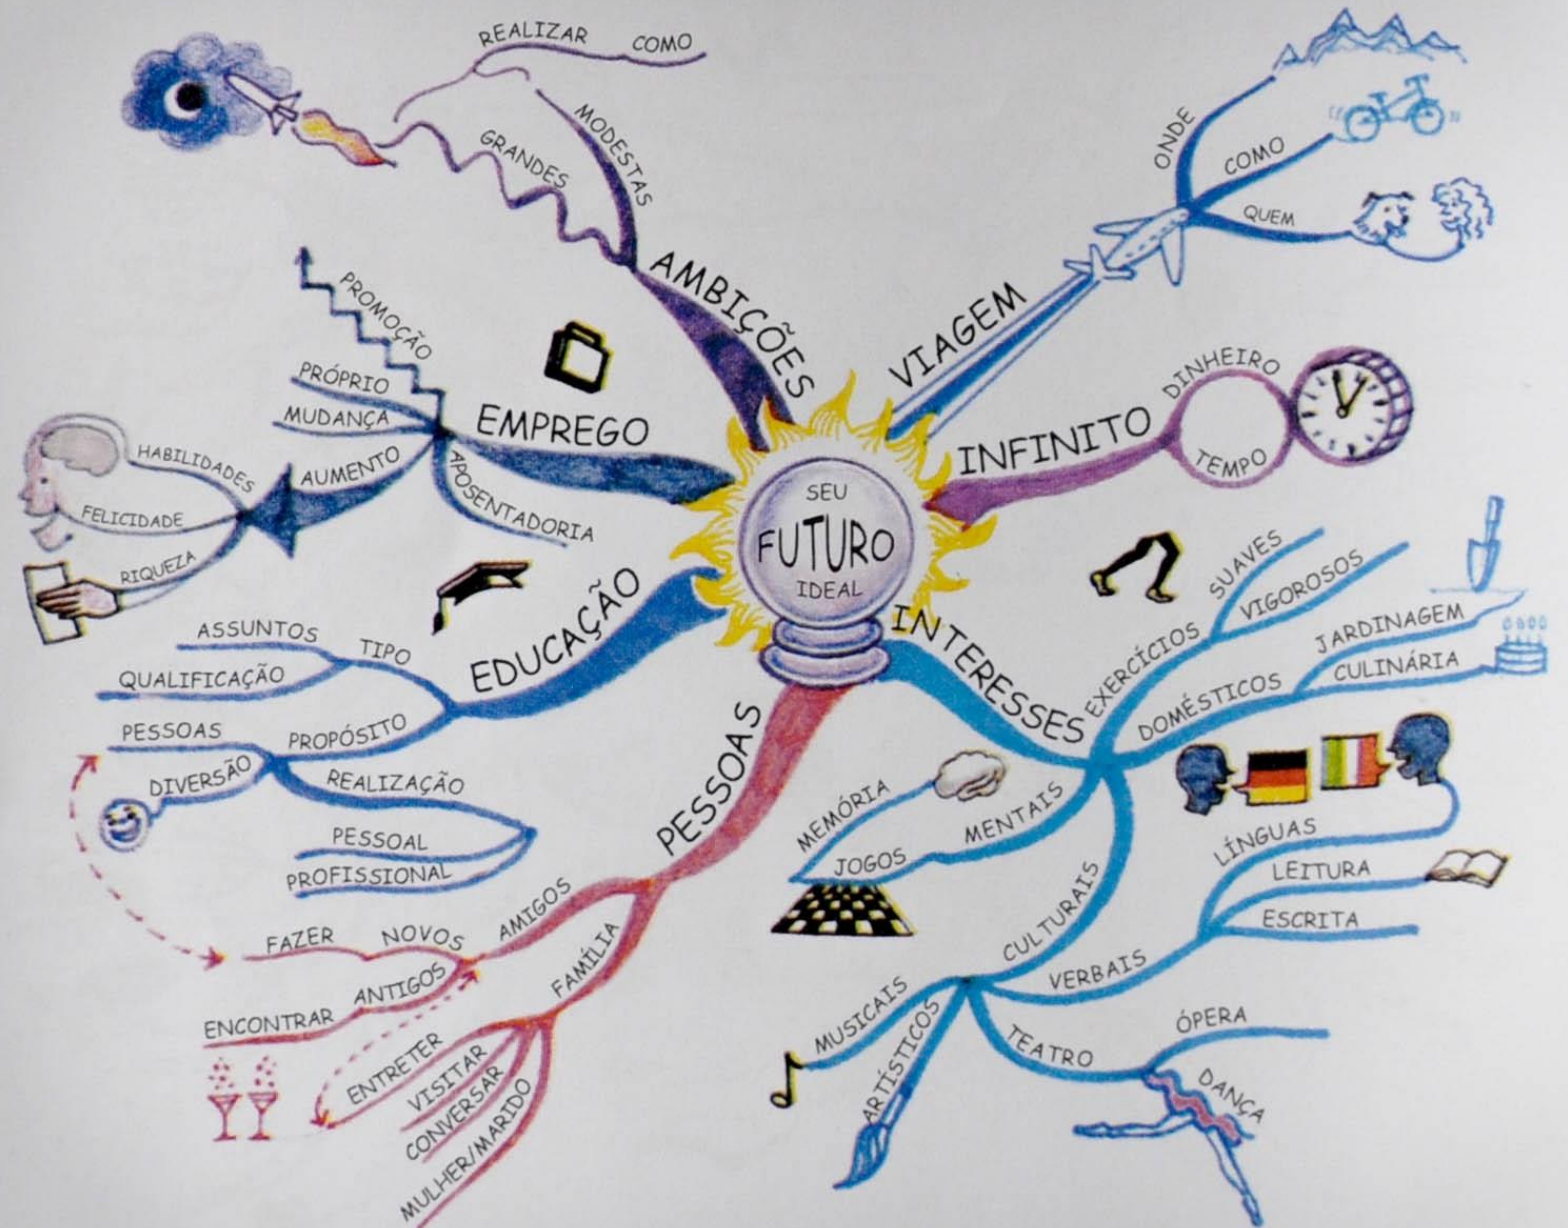 SEU
FUTURO
IDEAL
VIAGEM
ONDE
COMO
QUEM
INFINITO
DINHEIRO
TEMPO
INTERESSES
EXERCÍCIOS
SUAVES
VIGOROSOS
DOMÉSTICOS
JARDINAGEM
CULINÁRIA
MENTAIS
JOGOS
MEMÓRIA
CULTURAIS
VERBAIS
LÍNGUAS
LEITURA
ESCRITA
TEATRO
ÓPERA
DANÇA
ARTÍSTICOS
MUSICAIS
PESSOAS
AMIGOS
NOVOS
FAZER
ANTIGOS
ENCONTRAR
FAMÍLIA
ENTRETER
VISITAR
CONVERSAR
MULHER/MARIDO
EDUCAÇÃO
TIPO
ASSUNTOS
QUALIFICAÇÃO
PROPÓSITO
PESSOAS
DIVERSÃO
REALIZAÇÃO
PESSOAL
PROFISSIONAL
EMPREGO
PROMOÇÃO
PRÓPRIO
MUDANÇA
AUMENTO
HABILIDADES
FELICIDADE
RIQUEZA
APOSENTADORIA
AMBIÇÕES
MODESTAS
GRANDES
REALIZAR COMO